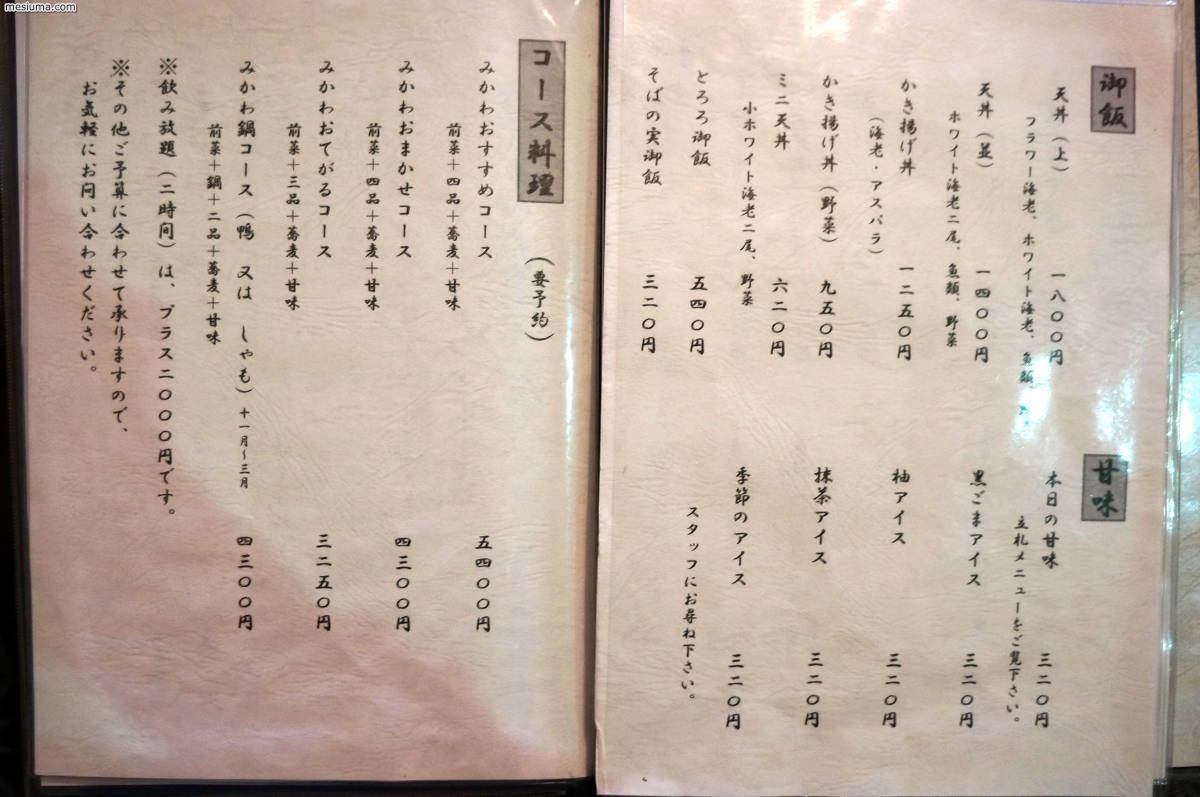 mesiuma.com
御飯
天丼（上） 一八〇〇円
フラワー海老、ホワイト海老、魚類、
天丼（並） 一四〇〇円
ホワイト海老二尾、魚類、野菜
かき揚げ丼 一二五〇円
（海老・アスパラ）
かき揚げ丼（野菜） 九五〇円
ミニ天丼 六二〇円
小ホワイト海老二尾、野菜
とろろ御飯 五四〇円
そばの実御飯 三二〇円
甘味
本日の甘味 三二〇円
立札メニューをご覧下さい。
黒ごまアイス 三二〇円
柚アイス 三二〇円
抹茶アイス 三二〇円
季節のアイス 三二〇円
スタッフにお尋ね下さい。
コース料理 （要予約）
みかわおすすめコース 五四〇〇円
前菜＋四品＋蕎麦＋甘味
みかわおまかせコース 四三〇〇円
前菜＋四品＋蕎麦＋甘味
みかわおてがるコース 三二五〇円
前菜＋三品＋蕎麦＋甘味
みかわ鍋コース（鴨 又は しゃも）十一月〜三月 四三〇〇円
前菜＋鍋＋二品＋蕎麦＋甘味
※飲み放題（二時間）は、プラス二〇〇〇円です。
※その他ご予算に合わせて承りますので、
お気軽にお問い合わせください。